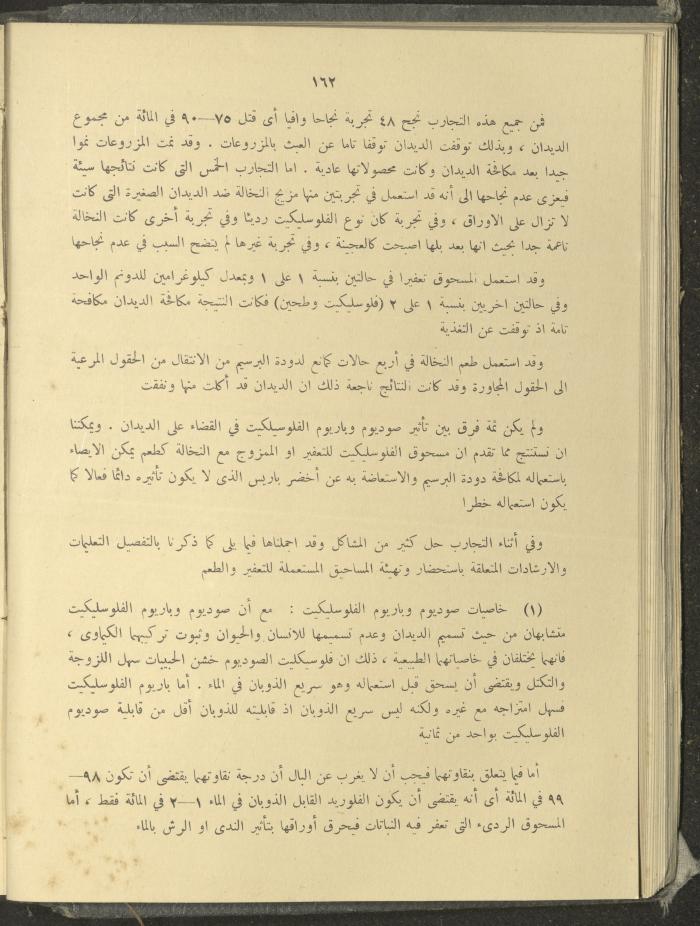 ١٦٢
فمن جميع هذه التجارب نجح ٤٨ تجربة نجاحا وافيا أى قتل ٧٥—٩٠ في المائة من مجموع
الديدان ، وبذلك توقفت الديدان توقفا تاما عن العبث بالمزروعات . وقد نمت المزروعات نموا
جيدا بعد مكافحة الديدان وكانت محصولاتها عادية . اما التجارب الخمس التى كانت نتائجها سيئة
فيعزى عدم نجاحها الى أنه قد استعمل في تجربتين منها مزيج النخالة ضد الديدان الصغيرة التى كانت
لا تزال على الاوراق ، وفي تجربة كان نوع الفلوسليكيت رديئا وفي تجربة أخرى كانت النخالة
ناعمة جدا بحيث انها بعد بلها اصبحت كالعجينة ، وفي تجربة غيرها لم يتضح السبب في عدم نجاحها
وقد استعمل المسحوق تعفيرا في حالتين بنسبة ١ على ١ وبمعدل كيلوغرامين للدونم الواحد
وفي حالتين اخريين بنسبة ١ على ٢ (فلوسليكيت وطحين) فكانت النتيجة مكافحة الديدان مكافحة
تامة اذ توقفت عن التغذية
وقد استعمل طعم النخالة في أربع حالات كمانع لدودة البرسيم من الانتقال من الحقول المرعية
الى الحقول المجاورة وقد كانت النتائج ناجعة ذلك ان الديدان قد أكلت منها ونفقت
ولم يكن ثمة فرق بين تأثير صوديوم وباريوم الفلوسيلكيت في القضاء على الديدان . ويمكننا
ان نستنتج مما تقدم ان مسحوق الفلوسليكيت للتعفير او الممزوج مع النخالة كطعم يمكن الايصاء
باستعماله لمكافحة دودة البرسيم والاستعاضة به عن أخضر باريس الذى لا يكون تأثيره دائما فعالا كما
يكون استعماله خطرا
وفي أثناء التجارب حل كثير من المشاكل وقد اجملناها فيما يلى كما ذكرنا بالتفصيل التعليمات
والارشادات المتعلقة باستحضار وتهيئة المساحيق المستعملة للتعفير والطعم
(١) خاصيات صوديوم وباريوم الفلوسليكيت : مع أن صوديوم وباريوم الفلوسليكيت
متشابهان من حيث تسميم الديدان وعدم تسميمها للانسان والحيوان وثبوت تركيبهما الكيماوى ،
فانهما يختلفان في خاصياتهما الطبيعية ، ذلك ان فلوسيكليت الصوديوم خشن الحبيبات سهل اللزوجة
والتكتل ويقتضى أن يسحق قبل استعماله وهو سريع الذوبان في الماء . أما باريوم الفلوسليكيت
فسهل امتزاجه مع غيره ولكنه ليس سريع الذوبان اذ قابليته للذوبان أقل من قابلية صوديوم
الفلوسليكيت بواحد من ثمانية
أما فيما يتعلق بنقاوتهما فيجب أن لا يغرب عن البال أن درجة نقاوتهما يقتضى أن تكون ٩٨—
٩٩ في المائة أى أنه يقتضى أن يكون الفلوريد القابل الذوبان في الماء ١—٢ في المائة فقط ، أما
المسحوق الردىء التى تعفر فيه النباتات فيحرق أوراقها بتأثير الندى او الرش بالماء